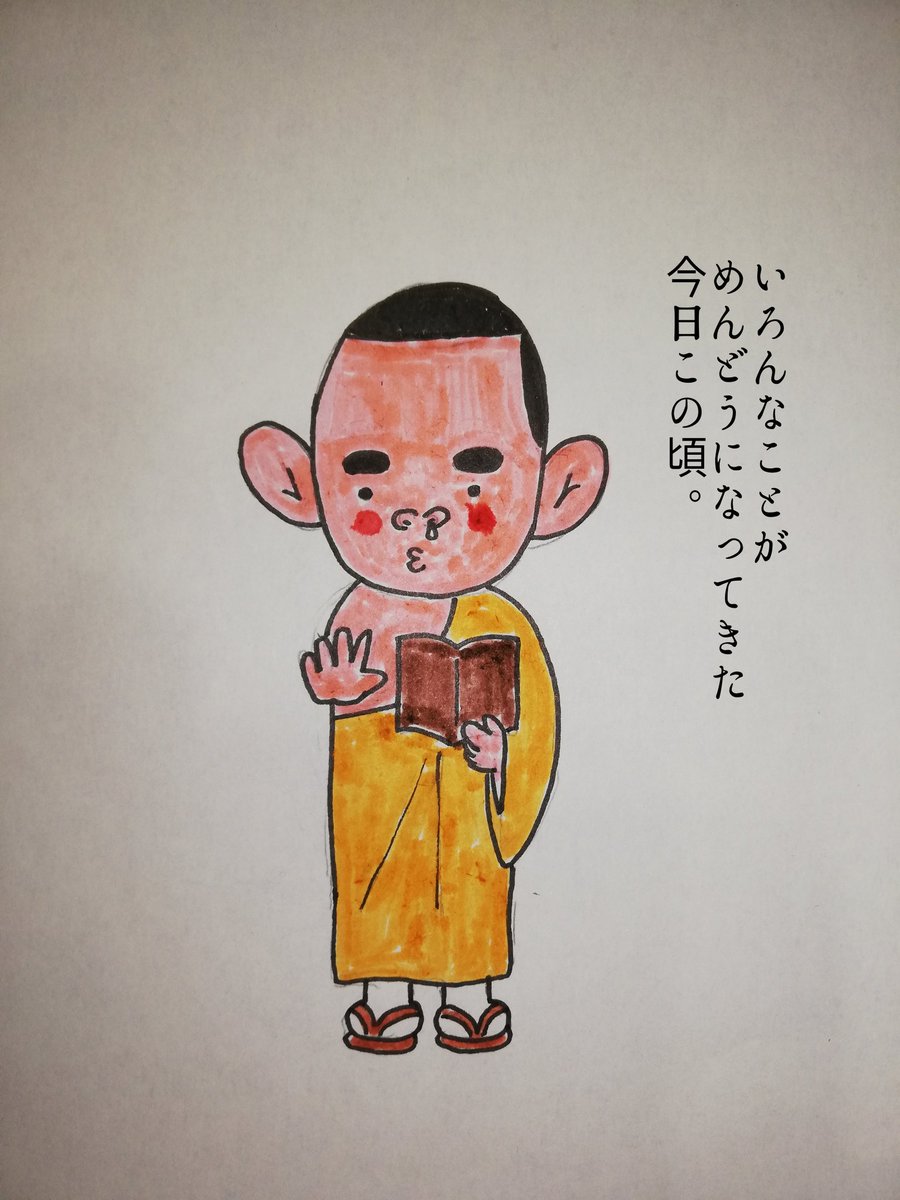 いろんなことが
めんどうになってきた
今日この頃。